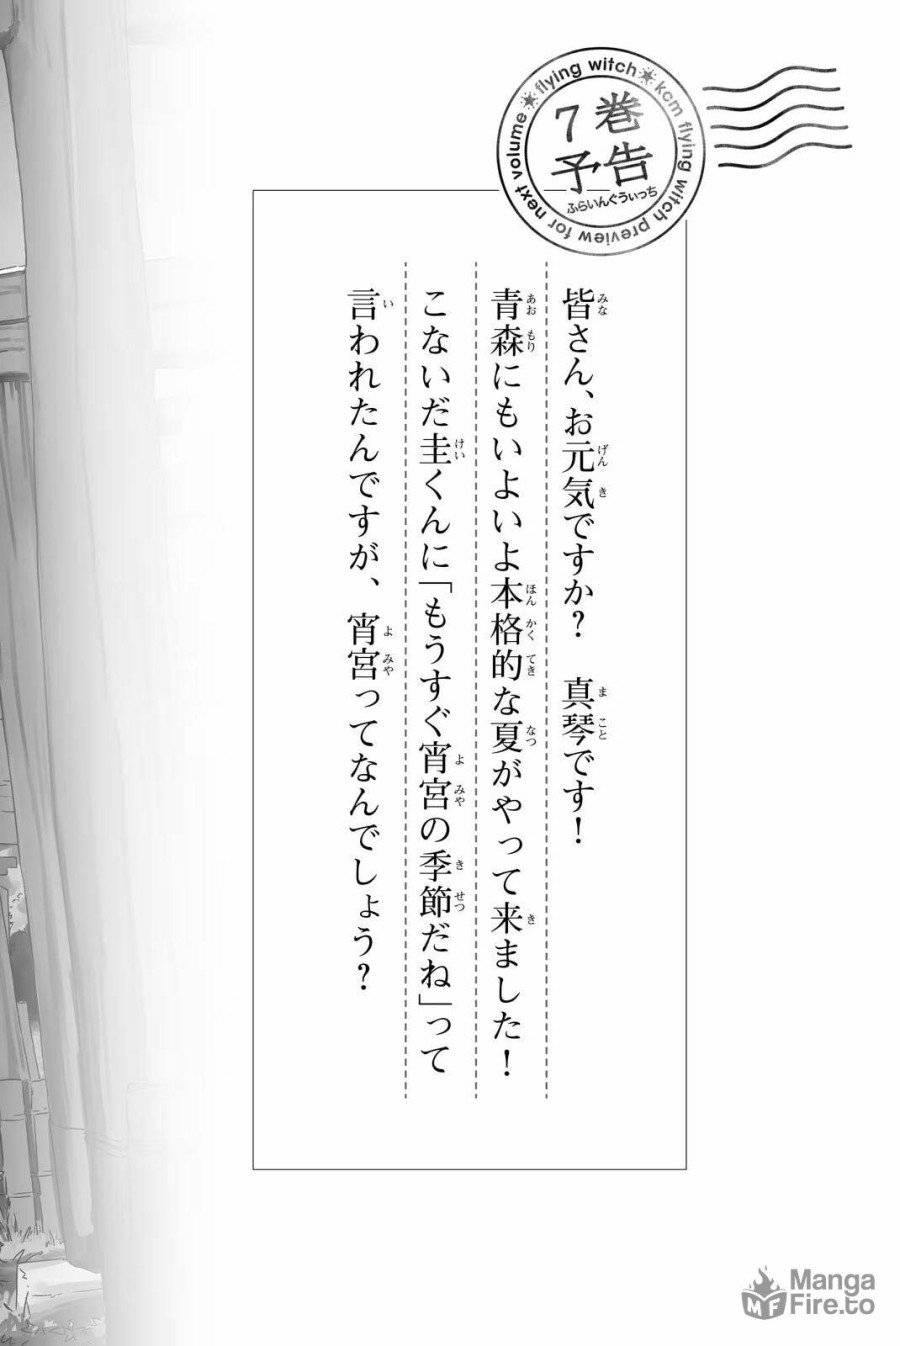 flying witch
kcm flying witch preview for next volume
7巻
予告
ふらいんぐうぃっち
皆さん、お元気ですか？　真琴です！
青森にもいよいよ本格的な夏がやって来ました！
こないだ圭くんに「もうすぐ宵宮の季節だね」って
言われたんですが、宵宮ってなんでしょう？
Manga
Fire.to
MF